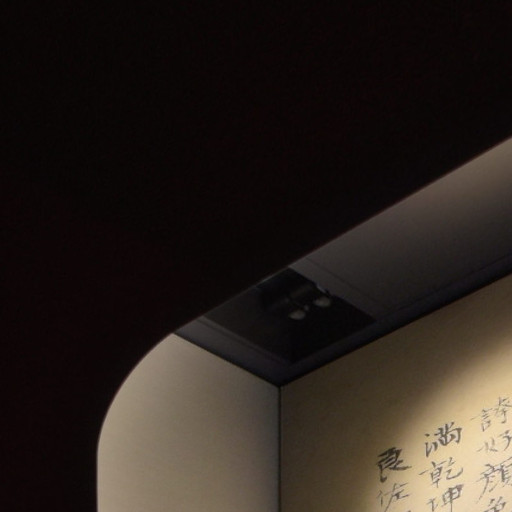 詩好顏
满乾坤
良佐